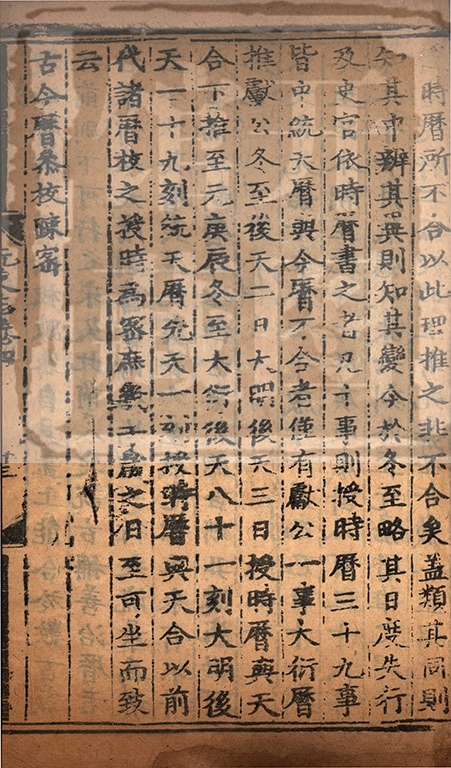 時曆所不合以此理推之非不合矣蓋類其同則
知其中辨其異則知其變今於冬至略其日度失行
及史官依時曆書之者凡十事則授時曆三十九事
皆中統天曆與今曆不合者僅有獻公一事大衍曆
推獻公冬至後天二日大明後天三日授時曆與天
合下推至元庚辰冬至大衍後天八十一刻大明後
天一十九刻統天曆先天一刻授時曆與天合以前
代諸曆校之授時為密庶幾千歲之日至可坐而致
云
古今曆參校疎密